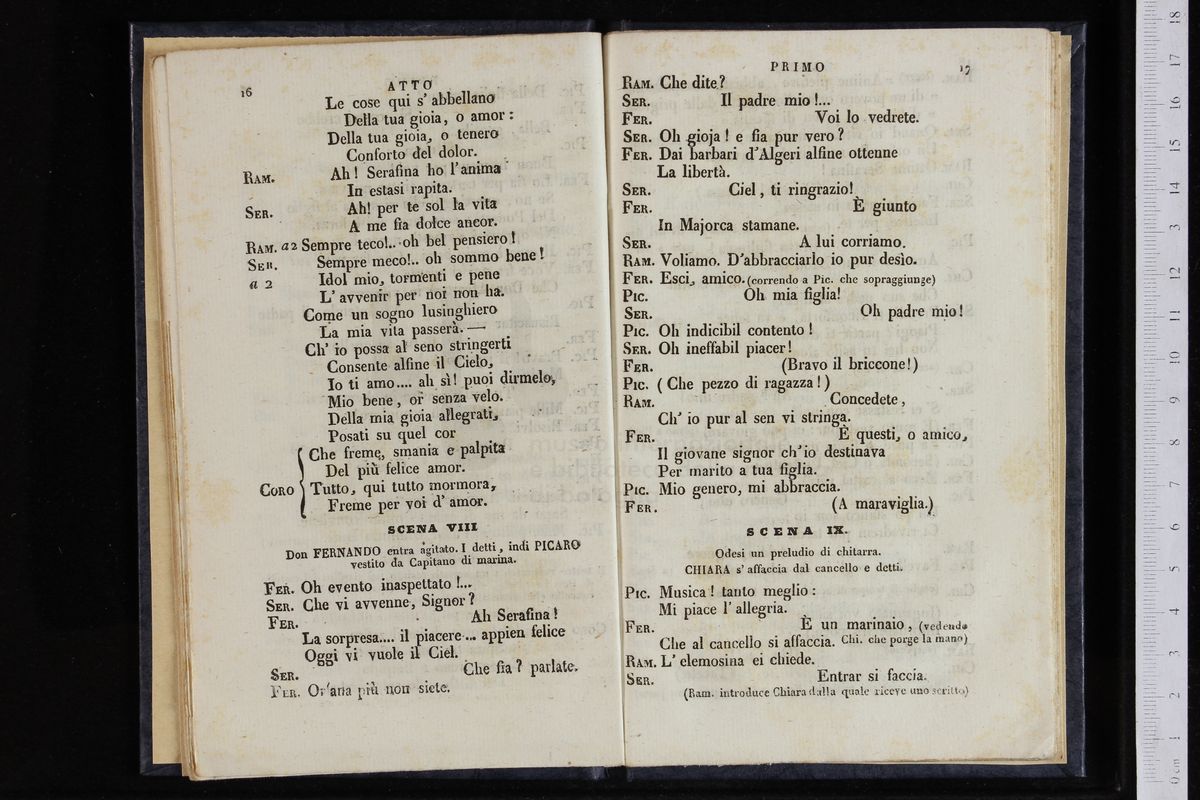 16
ATTO
Le cose qui s' abbellano
Della tua gioia, o amor :
Della tua gioia, o tenero
Conforto del dolor.
RAM. Ah! Serafina ho l'anima
In estasi rapita.
SER. Ah! per te sol la vita
A me fia dolce ancor.
RAM. a2 Sempre teco!.. oh bel pensiero !
SER. Sempre meco!.. oh sommo bene !
a 2 Idol mio, tormenti e pene
L' avvenir per noi non ha.
Come un sogno lusinghiero
La mia vita passerà. —
Ch' io possa al seno stringerti
Consente alfine il Cielo,
Io ti amo.... ah sì! puoi dirmelo,
Mio bene, or senza velo.
Della mia gioia allegrati,
Posati su quel cor
Che freme, smania e palpita
Del più felice amor.
CORO Tutto, qui tutto mormora,
Freme per voi d' amor.
SCENA VIII
Don FERNANDO entra agitato. I detti, indi PICARO
vestito da Capitano di marina.
FER. Oh evento inaspettato !...
SER. Che vi avvenne, Signor ?
FER. Ah Serafina !
La sorpresa.... il piacere... appien felice
Oggi vi vuole il Ciel.
SER. Che fia ? parlate.
FER. Orfana più non siete.
PRIMO
17
RAM. Che dite ?
SER. Il padre mio !...
FER. Voi lo vedrete.
SER. Oh gioja ! e fia pur vero ?
FER. Dai barbari d'Algeri alfine ottenne
La libertà.
SER. Ciel, ti ringrazio!
FER. È giunto
In Majorca stamane.
SER. A lui corriamo.
RAM. Voliamo. D'abbracciarlo io pur desìo.
FER. Esci, amico. (correndo a Pic. che sopraggiunge)
PIC. Oh mia figlia!
SER. Oh padre mio!
PIC. Oh indicibil contento !
SER. Oh ineffabil piacer!
FER. (Bravo il briccone!)
PIC. ( Che pezzo di ragazza ! )
RAM. Concedete,
Ch' io pur al sen vi stringa.
FER. È questi, o amico,
Il giovane signor ch'io destinava
Per marito a tua figlia.
PIC. Mio genero, mi abbraccia.
FER. (A maraviglia.)
SCENA IX.
Odesi un preludio di chitarra.
CHIARA s' affaccia dal cancello e detti.
PIC. Musica ! tanto meglio :
Mi piace l' allegria.
FER. È un marinaio, (vedendo
Che al cancello si affaccia. Chi. che porge la mano)
RAM. L' elemosina ei chiede.
SER. Entrar si faccia.
(Ram. introduce Chiara dalla quale riceve uno scritto)
0 cm 1 2 3 4 5 6 7 8 9 10 11 12 13 14 15 16 17 18